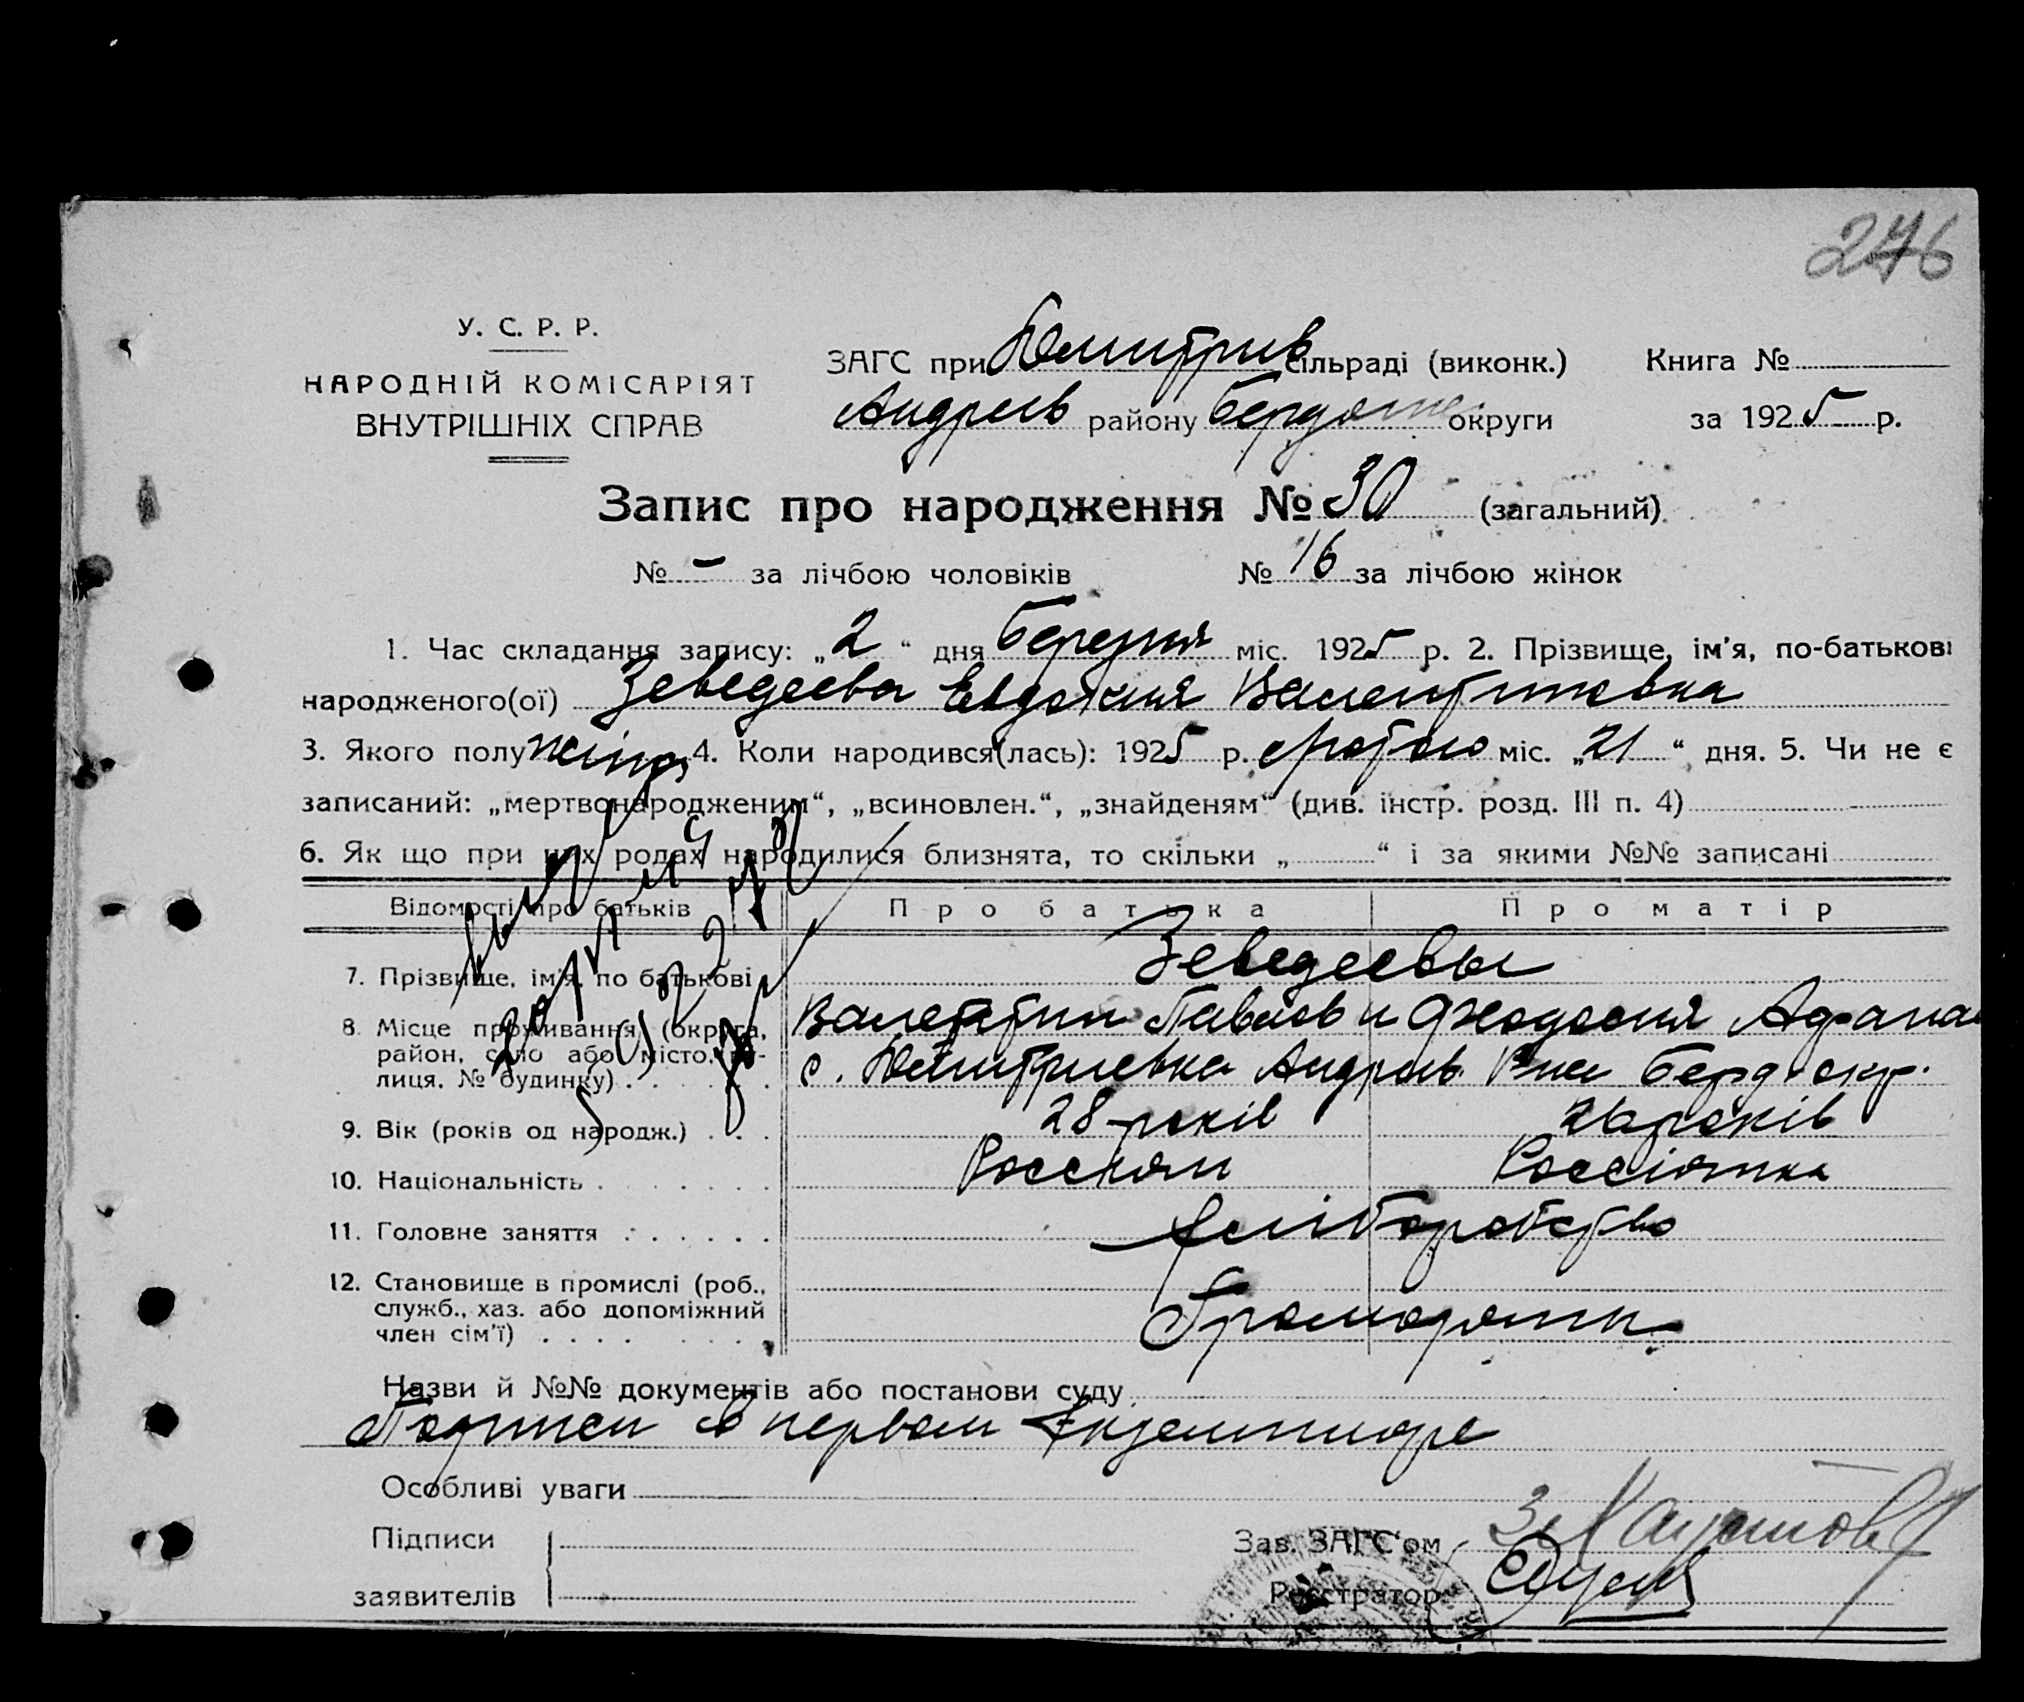 276
У. С. Р. Р.
НАРОДНІЙ КОМІСАРІЯТ
ВНУТРІШНІХ СПРАВ
ЗАГС при Дмитрив сільраді (виконк.) Книга №
Андреев району Бердянс округи за 1925 р.
Запис про народження № 30 (загальний)
№ - за лічбою чоловіків № 16 за лічбою жінок
1. Час складання запису: „2“ дня березня міс. 1925 р. 2. Прізвище, ім'я, по-батькові
народженого(ої) Зеведеева Евдокия Валентиновна
3. Якого полу жіноч 4. Коли народився(лась): 1925 р. лютого міс. „21“ дня. 5. Чи не є
записаний: „мертвонародженим“, „всиновлен.“, „знайденям“ (див. інстр. розд. III п. 4)
6. Як що при цих родах народилися близнята, то скільки „ “ і за якими №№ записані
Відомості про батьків Про батька Про матір
7. Прізвище, ім'я, по батькові Зеведеевы
Валентин Павлов и Феодосия Афана
8. Місце проживання (округа,
район, село або місто, ву-
лиця, № будинку) с. Дмитриевка Андреев. Р-на Берд окр.
9. Вік (років од народж.) 28 років 26 років
10. Національність Россиян Россіянка
11. Головне заняття хліборобство
12. Становище в промислі (роб.,
служб., хаз. або допоміжний
член сім'ї)
Назви й №№ документів або постанови суду
Подписи в первом екземпляре
Особливі уваги
Підписи
заявителів
Зав. ЗАГС'ом
Реєстратор